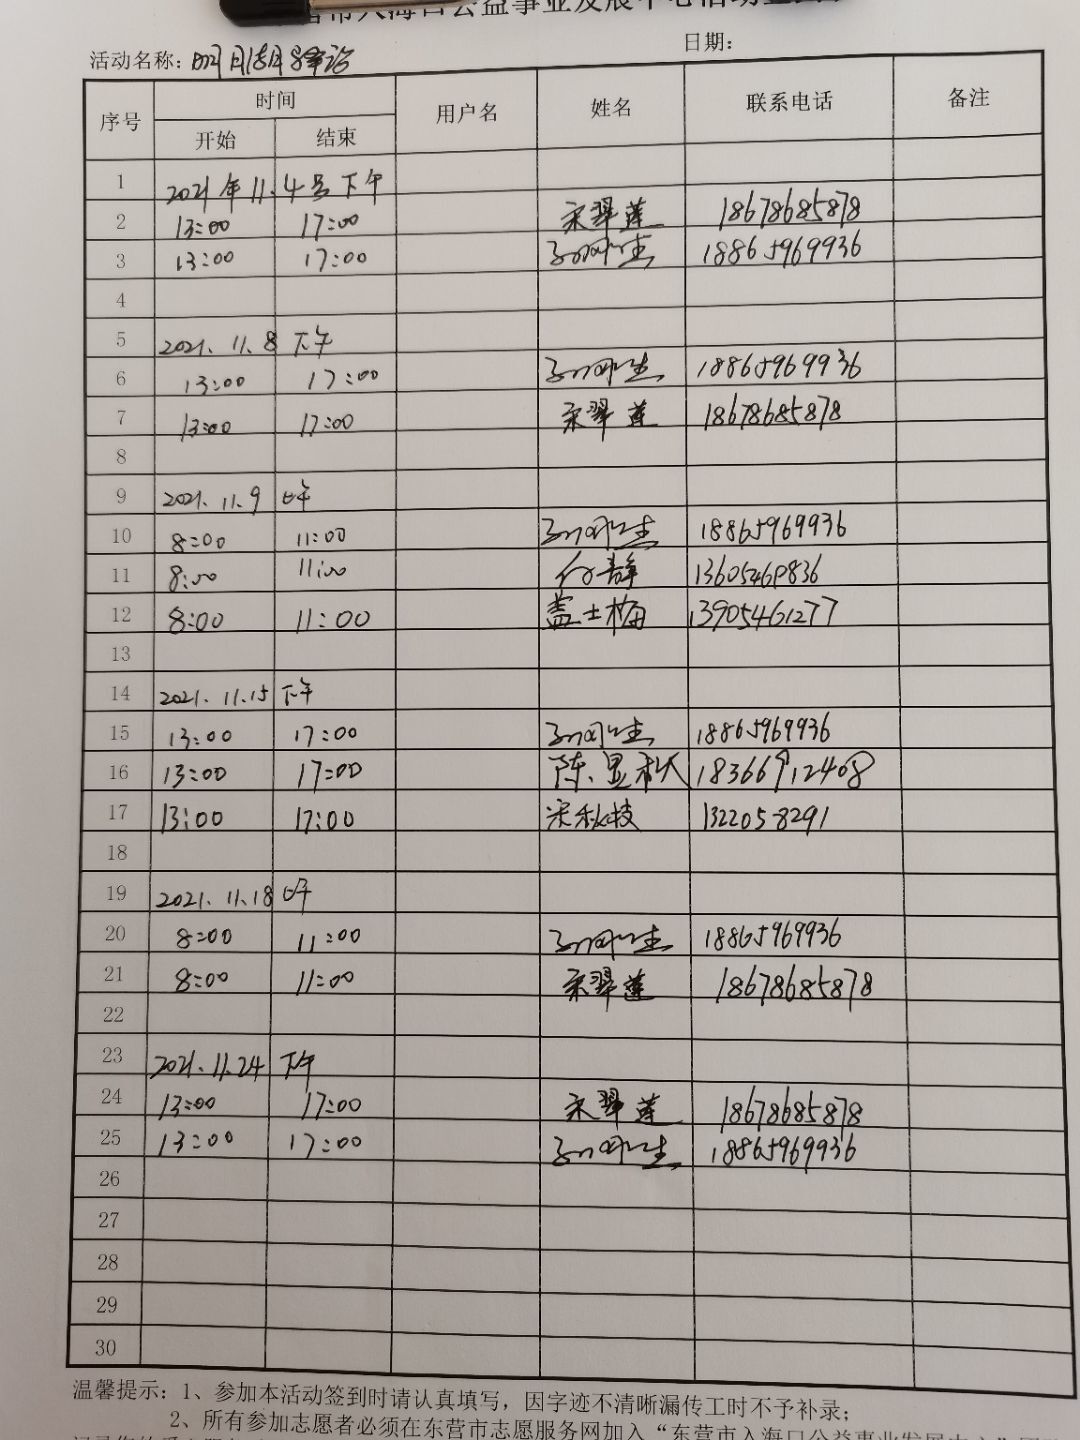 活动名称:
日期:
序号 时间 用户名 姓名 联系电话 备注
开始 结束
1 2021年11.4号下午
2 13:00 17:00 宋翠莲 18678685878
3 13:00 17:00 18865969936
4
5 2021.11.8 下午
6 13:00 17:00 18865969936
7 13:00 17:00 宋翠莲 18678685878
8
9 2021.11.9 上午
10 8:00 11:00 18865969936
11 8:00 11:00 13605469836
12 8:00 11:00 盖士梅 13905461277
13
14 2021.11.15 下午
15 13:00 17:00 18865969936
16 13:00 17:00 陈显秋 18366912408
17 13:00 17:00 宋秋枝 1322058291
18
19 2021.11.18 上午
20 8:00 11:00 18865969936
21 8:00 11:00 宋翠莲 18678685878
22
23 2021.11.24 下午
24 13:00 17:00 宋翠莲 18678685878
25 13:00 17:00 18865969936
26
27
28
29
30
温馨提示:1、参加本活动签到时请认真填写，因字迹不清晰漏传工时不予补录;
2、所有参加志愿者必须在东营市志愿服务网加入“东营市入海口公益事业发展中心”